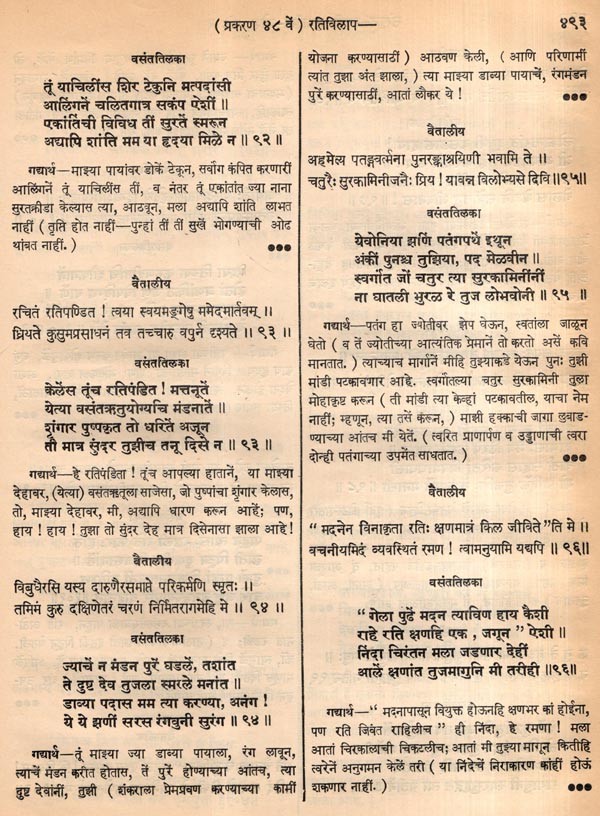 ( प्रकरण ४८ वें ) रतिविलाप—
४९३
वसंततिलका
तूं याचिलींस शिर टेकुनि मत्पदांसी
आलिंगनें चलितगात्र सकंप ऐशीं ॥
एकांतिंची विविध तीं सुरतें स्मरून
अद्यापि शांति मम या हृदया मिळे न ॥ ९२ ॥
गद्यार्थ—माझ्या पायांवर डोकें टेकून, सर्वांग कंपित करणारीं
आलिंगनें तूं याचिलींस तीं, व नंतर तूं एकांतांत ज्या नाना
सुरतक्रीडा केल्यास त्या, आठवून, मला अद्यापि शांति लाभत
नाहीं ( तृप्ति होत नाहीं—पुन्हां तीं तीं सुखें भोगण्याची ओढ
थांबत नाहीं. ) ●●●
वैतालीय
रचितं रतिपण्डित ! त्वया स्वयमङ्गेषु ममेदमार्तवम् ॥
ध्रियते कुसुमप्रसाधनं तव तच्चारु वपुर्न दृश्यते ॥ ९३ ॥
वसंततिलका
केलेंस तूंच रतिपंडित ! मत्तनूतें
येत्या वसंतऋतुयोग्यचि मंडनातें ॥
शृंगार पुष्पकृत तो धरितें अजून
ती मात्र सुंदर तुझीच तनू दिसे न ॥ ९३ ॥
गद्यार्थ—हे रतिपंडिता ! तूंच आपल्या हातानें, या माझ्या
देहावर, (येत्या) वसंतऋतूला साजेसा, जो पुष्पांचा शृंगार केलास,
तो, माझ्या देहावर, मी, अद्यापि धारण करून आहें; पण,
हाय ! हाय ! तुझा तो सुंदर देह मात्र दिसेनासा झाला आहे !
वैतालीय
विबुधैरसि यस्य दारुणैरसमाप्ते परिकर्मणि स्मृतः ॥
तमिमं कुरु दक्षिणेतरं चरणं निर्मितरागमेहि मे ॥ ९४ ॥
वसंततिलका
ज्याचें न मंडन पुरें घडलें, तशांत
ते दुष्ट देव तुजला स्मरले मनांत ॥
डाव्या पदास मम त्या करण्या, अनंग !
ये ये झणीं सरस रंगवुनी सुरंग ॥ ९४ ॥
गद्यार्थ—तूं माझ्या ज्या डाव्या पायाला, रंग लावून,
त्याचें मंडन करीत होतास, तें पुरें होण्याच्या आंतच, त्या
दुष्ट देवांनीं, तुझी ( शंकराला प्रेमप्रवण करण्याच्या कामीं
योजना करण्यासाठीं ) आठवण केली, ( आणि परिणामीं
त्यांत तुझा अंत झाला, ) त्या माझ्या डाव्या पायाचें, रंगमंडन
पुरें करण्यासाठीं, आतां लौकर ये ! ●●●
वैतालीय
अहमेत्य पतङ्गवर्त्मना पुनरङ्काश्रयिणी भवामि ते ॥
चतुरैः सुरकामिनीजनैः प्रिय ! यावन्न विलोभ्यसे दिवि॥९५॥
वसंततिलका
येवोनिया झणिं पतंगपथें इथून
अंकीं पुनश्च तुझिया, पद मेळवीन ॥
स्वर्गांत जों चतुर त्या सुरकामिनींनीं
ना घातली भुरळ रे तुज लोभवोनी ॥ ९५ ॥
गद्यार्थ—पतंग हा ज्योतीवर झेप घेऊन, स्वतांला जाळून
घेतो ( व तें ज्योतीच्या आत्यंतिक प्रेमानें तो करतो असें कवि
मानतात. ) त्याच्याच मार्गानें मीहि तुझ्याकडे येऊन पुनः तुझी
मांडी पटकावणार आहे. स्वर्गातल्या चतुर सुरकामिनी तुला
मोहाकृष्ट करून ( ती मांडी त्या केव्हां पटकावतील, याचा नेम
नाहीं; म्हणून, त्या तसें करून, ) माझी हक्काची जागा लुबाड-
ण्याच्या आंतच मी येतें. ( त्वरित प्राणार्पण व उड्डाणाची त्वरा
दोन्ही पतंगाच्या उपमेंत साधतात. ) ●●●
वैतालीय
“ मदनेन विनाकृता रतिः क्षणमात्रं किल जीविते ”ति मे ॥
वचनीयमिदं व्यवस्थितं रमण ! त्वामनुयामि यद्यपि ॥९६॥
वसंततिलका
“ गेला पुढें मदन त्याविण हाय कैशी
राहे रति क्षणहि एक , जगून ” ऐशी ॥
निंदा चिरंतन मला जडणार देहीं
आलें क्षणांत तुजमागुनि मी तरीही ॥९६॥
गद्यार्थ—“ मदनापासून वियुक्त होऊनहि क्षणभर कां होईना,
पण रति जिवंत राहिलीच ” ही निंदा, हे रमणा ! मला
आतां चिरकालाची चिकटलीच; आतां मी तुझ्या मागून कितीहि
त्वरेनें अनुगमन केलें तरी ( या निंदेचें निराकरण कांहीं होऊं
शकणार नाहीं. ) ●●●